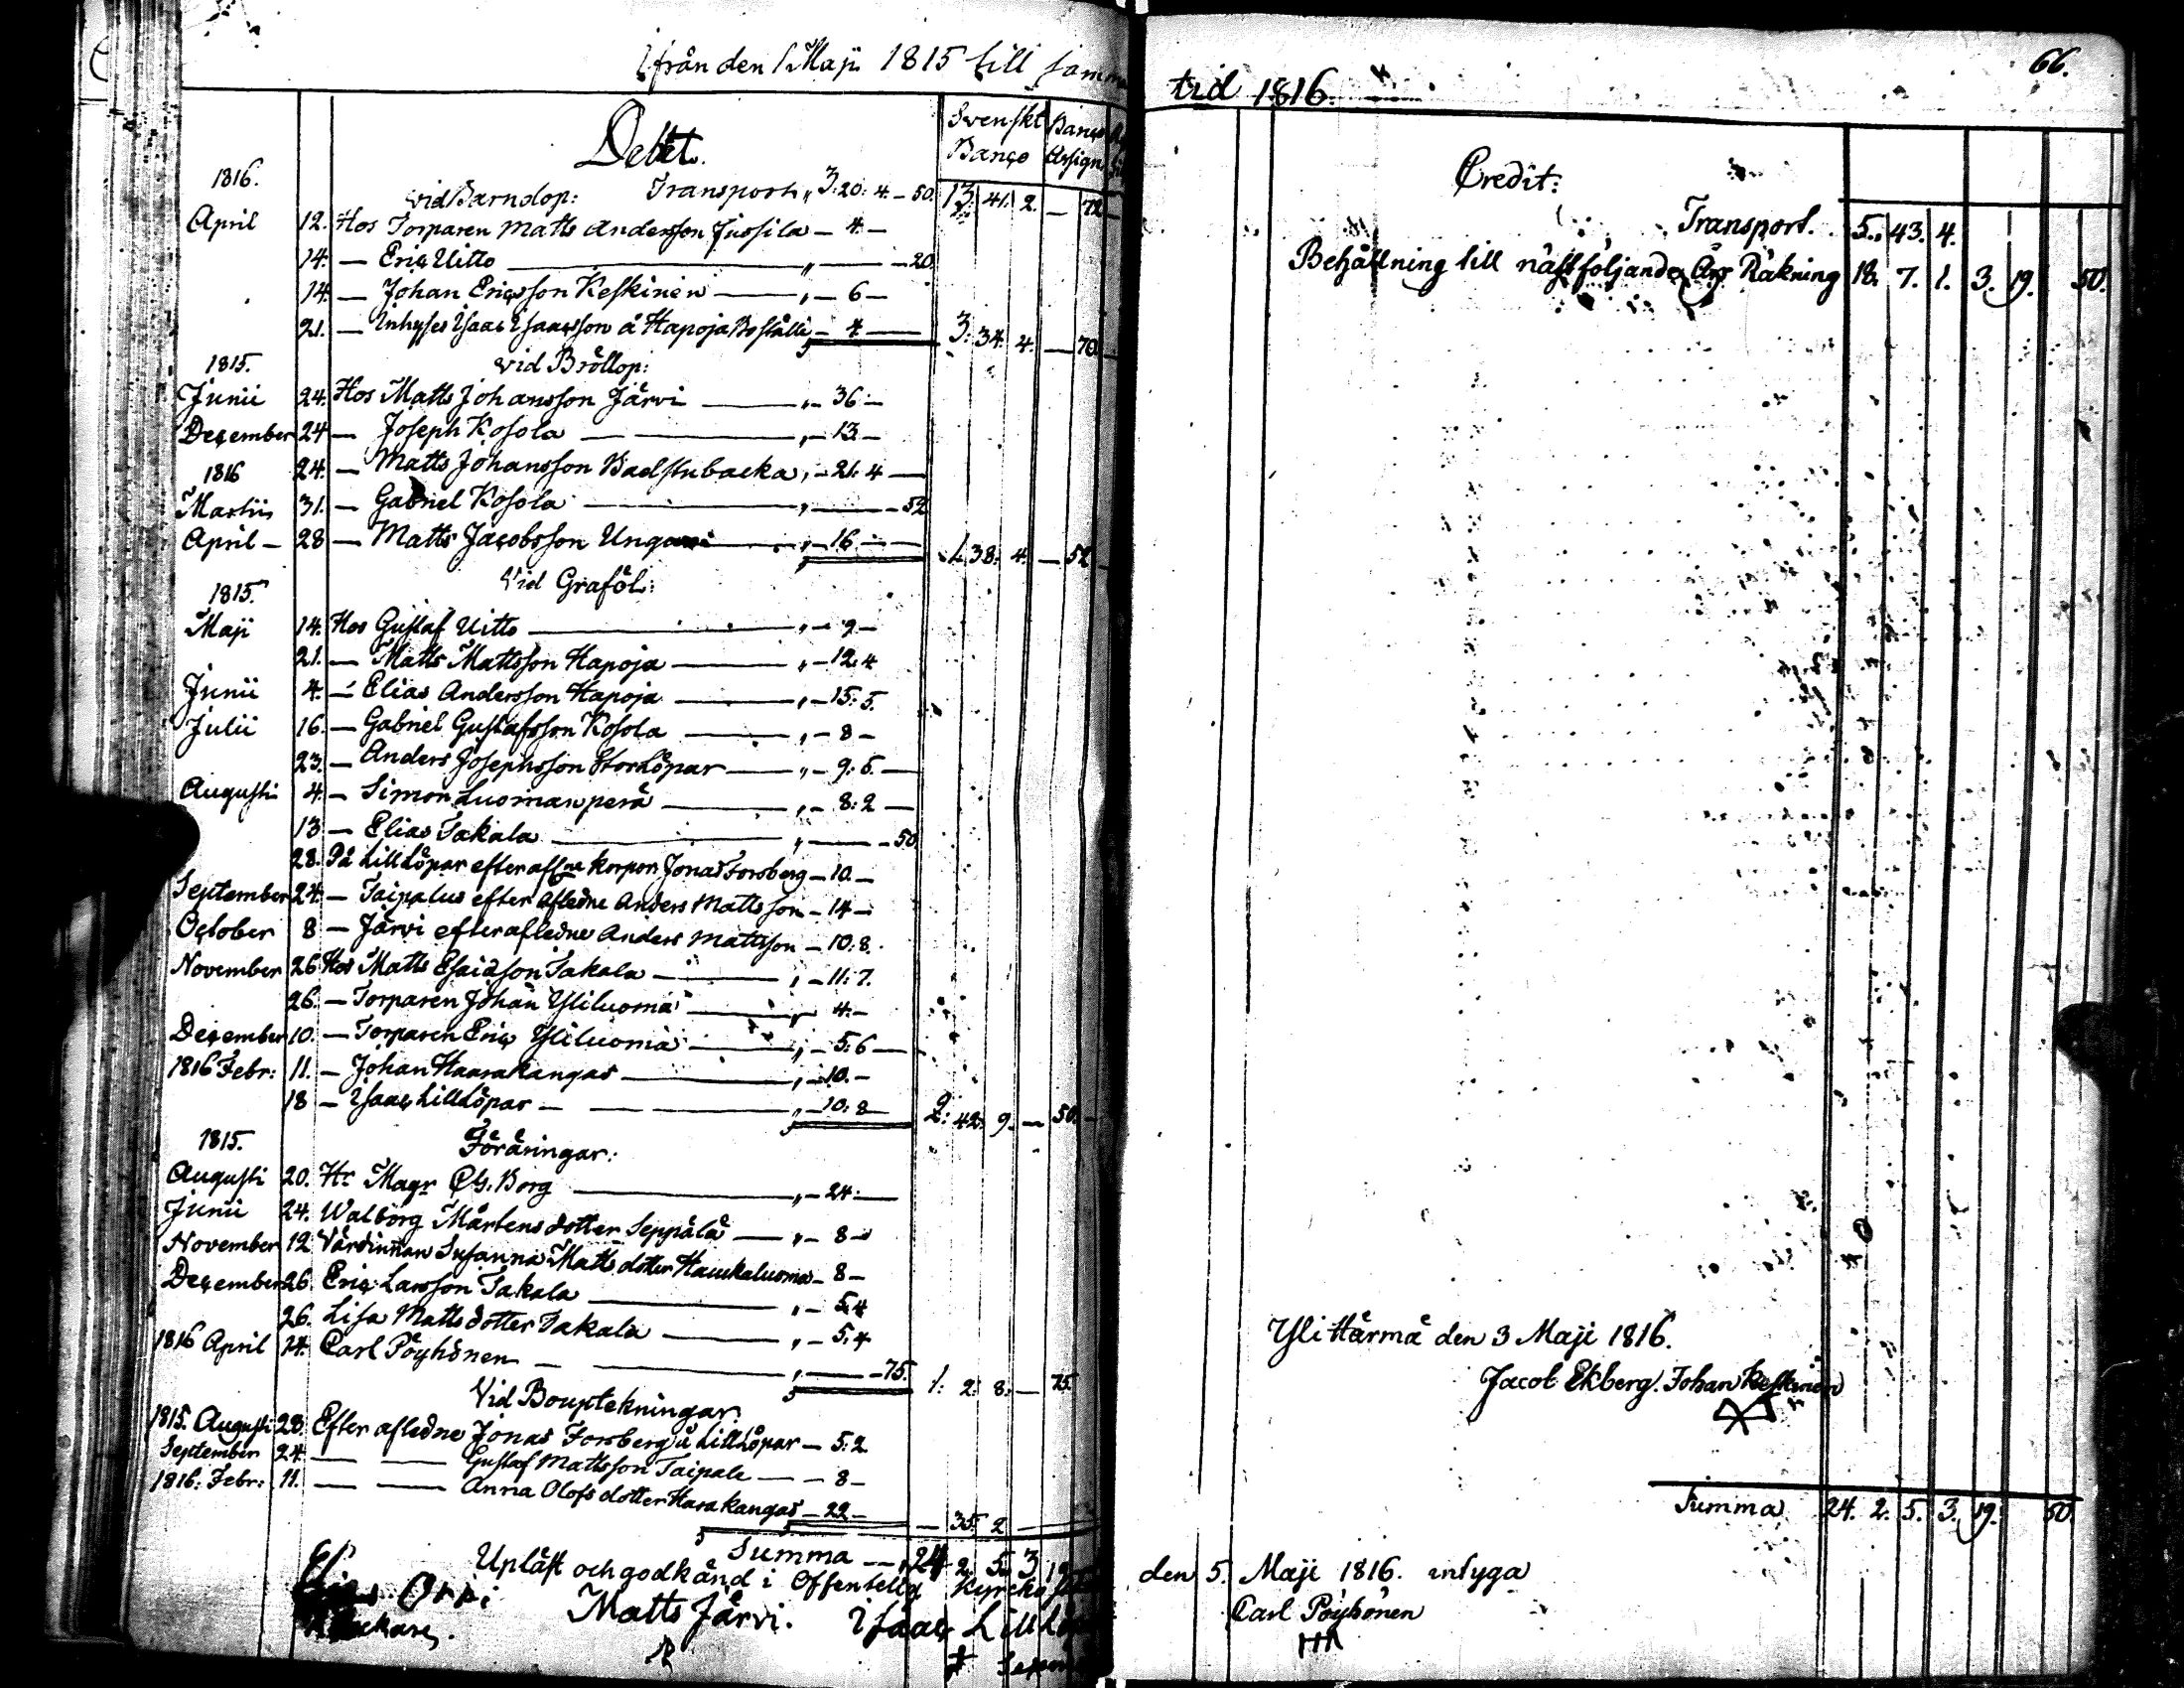 Ifrån den 1 Maji 1815 till samma
Debet. Svenskt Banço Banço Assign.
1816. vid Barndop: Transport „ 3: 20: 4. – 50. 13. 41. 2. – 72
April 12. Hos Torparen Matts Andersson Jussila – 4 –
14. – Eriç Uitto – „ – 20.
14. – Johan Ericsson Keskinen – „ – 6 –
21. – Inhyses Isaac Isaacsson å Hapoja Boställe – 4 – 3: 34. 4. – 70.
1815. vid Bröllop:
Junii 24. Hos Matts Johansson Järvi – „ – 36 –
Deçember 24 – Joseph Kosola – „ – 13 –
1816 24. – Matts Johansson Badstubacka „ – 21: 4 –
Martii 31. – Gabriel Kosola – „ – 52
April – 28 – Matts Jaçobsson Ungari – „ – 16 – 1. 38: 4. – 52
1815. Vid Graföl:
Maji 14. Hos Gustaf Uitto – „ – 9 –
21. – Matts Mattsson Hapoja – „ – 12: 4
Junii 4. – Elias Andersson Hapoja – „ – 15: 5.
Julii 16. – Gabriel Gustafsson Kosola – „ – 8 –
23. – Anders Josephsson Storlöpar – „ – 9: 5. –
Augusti 4. – Simon Luomanperä – „ – 8: 2 –
13 – Elias Takala – „ – 50
28. På Lill Löpar efter afl:ne Korpor. Jonas Forsberg – 10. –
September 24. – Taipalus efter Afledne Anders Mattsson – 14 –
Oçtober 8 – Järvi efter afledne Anders Mattsson – 10: 8.
November 26 Hos Matts Esaidson Takala – „ – 11: 7.
26. – Torparen Johan Yliluoma – „ 4. –
Deçember 10. – Torparen Eriç Yliluoma – „ – 5: 6 –
1816 Febr: 11. – Johan Haarakangas – „ – 10. –
18 – Isaaç Lill Löpar – „ – 10: 8 2: 42: 9. – 50. –
1815. Föräringar:
Augusti 20. Hr Magr Borg – „ – 24: –
Junii 24. Walborg Mårtensdotter Seppälä – „ – 8 –
November 12 Värdinnan Susanna Matts dotter Haukaluoma – 8 –
Deçember 26. Eriç Larsson Takala – „ – 5: 4
26. Lisa Matts dotter Takala – „ – 5. 4
1816 April 14. Carl Pöyhönen – „ – 75. 1: 2: 8: – 75.
Vid Bouptekningar
1815. Augusti 28. Efter afledne Jonas Forsberg å Lill Löpar – 5: 2
September 24. – – Gustaf Mattsson Taipale – – 8 –
1816: Febr: 11. – – Anna Olofs dotter Harakangas – 22 – – 35. 2
Summa – „ 24 2. 5. 3 19
Upläst och godkänd i Offentelig Kyrcko
Orri Matts Järvi. Isaaç Lill
66.
tid 1816.
Credit:
Transport. 5. 43. 4.
Behållning till nästföljande Års Räkning 18. 7. 1. 3. 19. 50.
Yli Härmä den 3 Maji 1816.
Jacob Ekberg. Johan Keskinen
Summa 24. 2. 5. 3. 19. 50
den 5. Maji 1816. intyga
Carl Pöyhönen